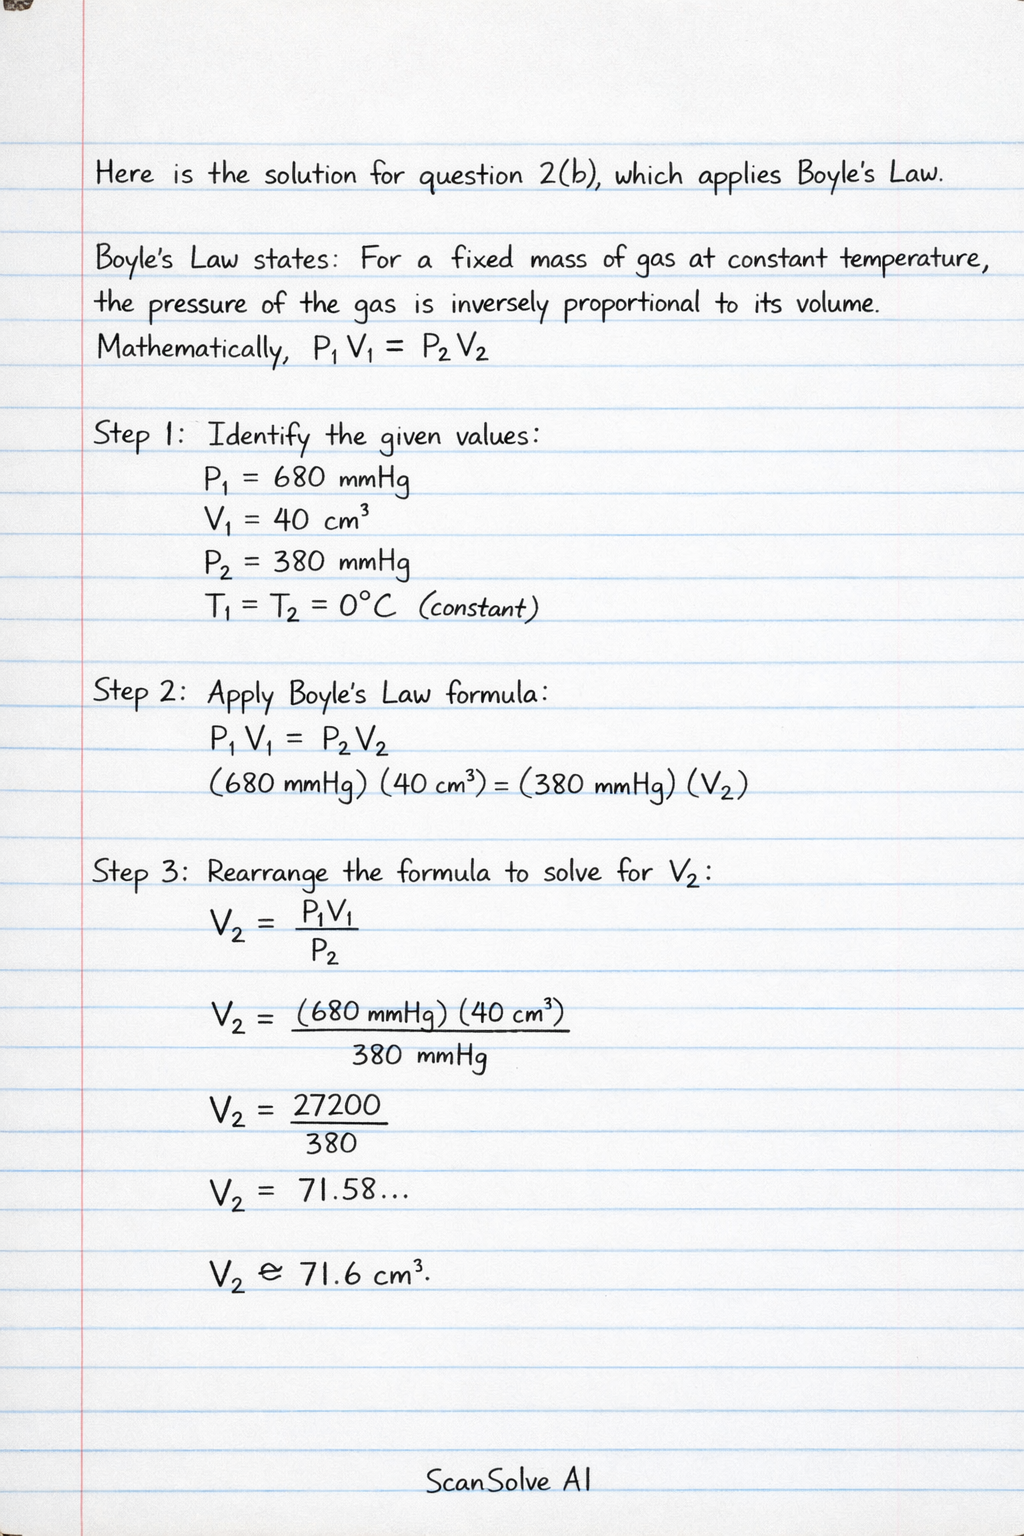 Here is the solution for question 2(b), which applies Boyle's Law.
Boyle's Law states: For a fixed mass of gas at constant temperature,
the pressure of the gas is inversely proportional to its volume.
Mathematically, P₁ V₁ = P₂ V₂
Step 1: Identify the given values:
P₁ = 680 mmHg
V₁ = 40 cm³
P₂ = 380 mmHg
T₁ = T₂ = 0°C (constant)
Step 2: Apply Boyle's Law formula:
P₁ V₁ = P₂ V₂
(680 mmHg) (40 cm³) = (380 mmHg) (V₂)
Step 3: Rearrange the formula to solve for V₂:
V₂ = P₁V₁
P₂
V₂ = (680 mmHg) (40 cm³)
380 mmHg
V₂ = 27200
380
V₂ = 71.58...
V₂ ≈ 71.6 cm³.
ScanSolve AI